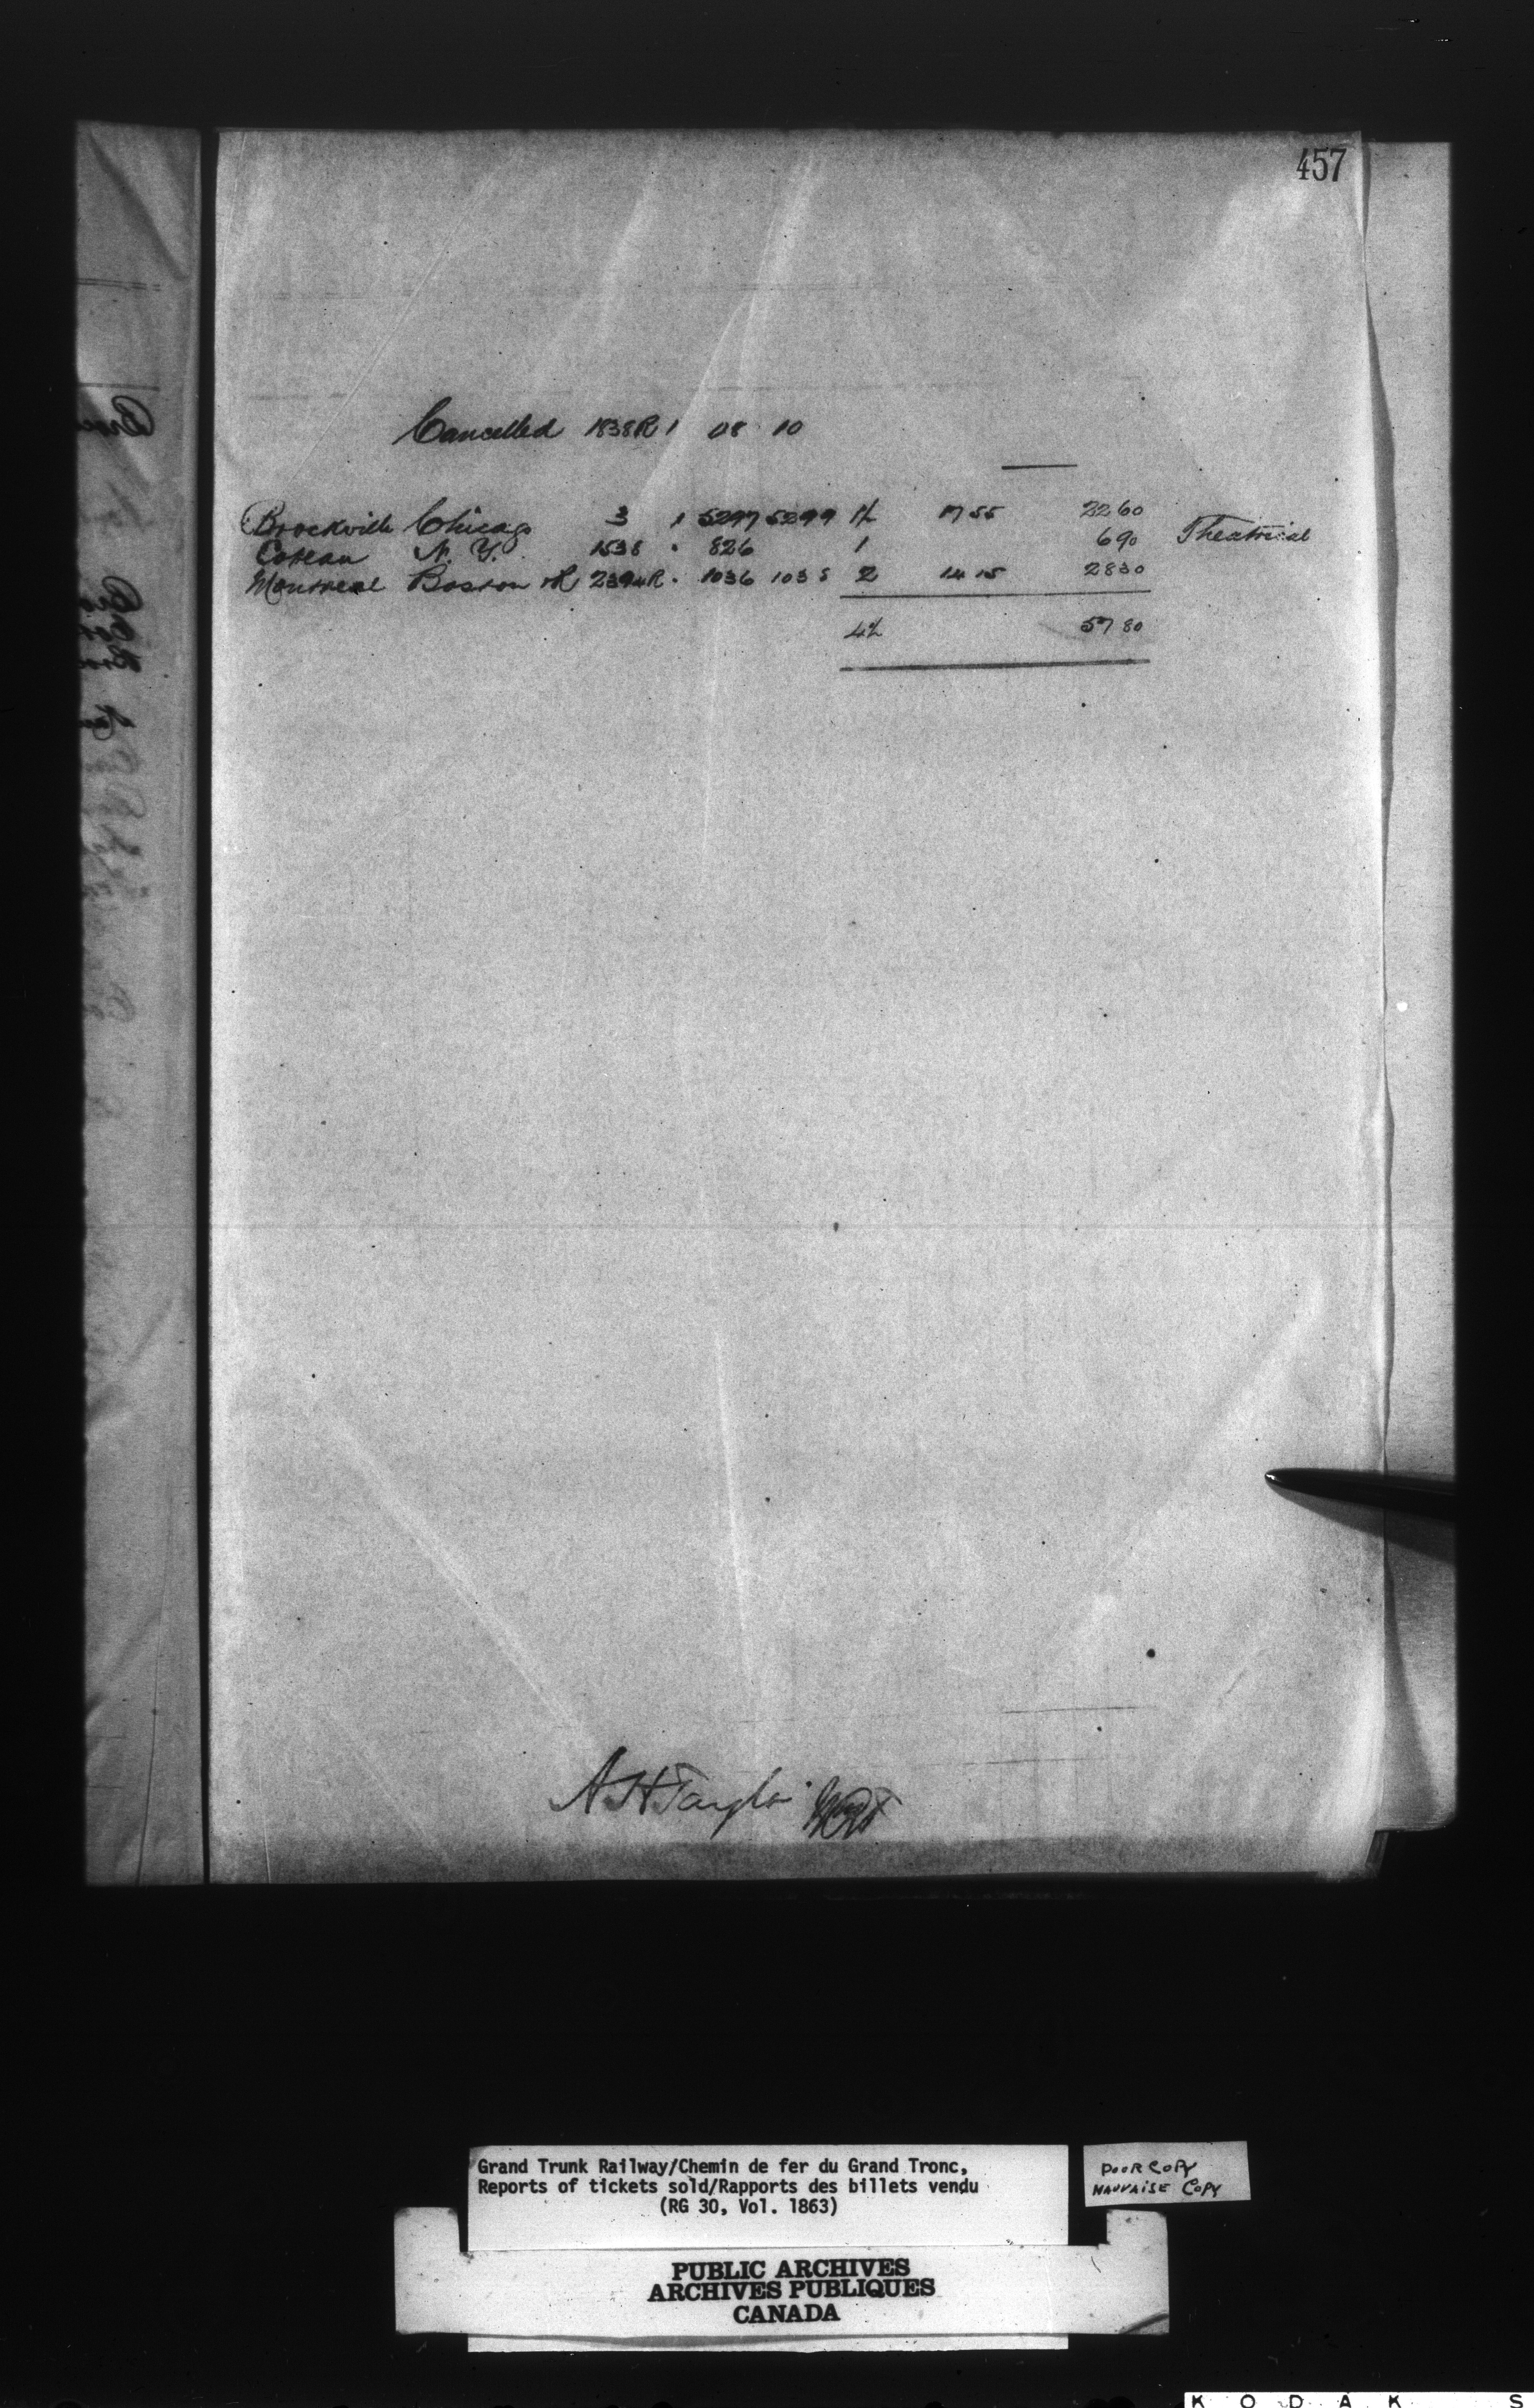 457
Cancelled 1838R 1 08 10
Brockville Chicago 3 1 5297 5299 1½ 17 55 22 60
Coteau N.Y. 1538 " 826 1 6 90 Theatrical
Montreal Boston R 2394R " 1036 1038 2 14 15 28 30
4½ 57 80
A H Taylor
Grand Trunk Railway/Chemin de fer du Grand Tronc,
Reports of tickets sold/Rapports des billets vendu
(RG 30, Vol. 1863)
POOR COPY
MAUVAISE COPY
PUBLIC ARCHIVES
ARCHIVES PUBLIQUES
CANADA
KODAK S